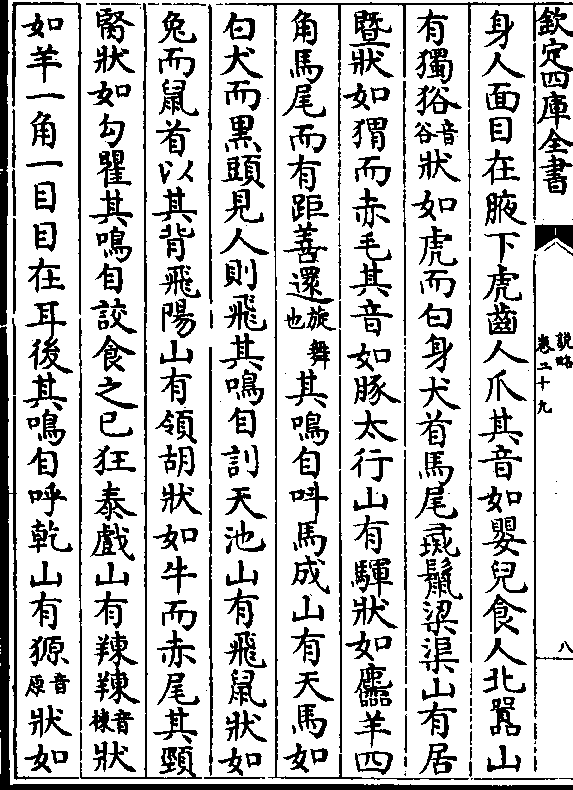 欽定四庫全書
說略
卷二十九
八
身人面目在腋下虎齒人爪其音如嬰兒食人北嚻山
有獨㺄音谷狀如虎而白身犬首馬尾彘鬛梁渠山有居
暨狀如猬而赤毛其音如豚太行山有驒狀如麢羊四
角馬尾而有距善還旋舞也其鳴自呌馬成山有天馬如
白犬而黒頭見人則飛其鳴自訆天池山有飛鼠狀如
兔而鼠首以其背飛陽山有領胡狀如牛而赤尾其頸
䐂狀如勾瞿其鳴自詨食之已狂泰戲山有䍶䍶音楝狀
如羊一角一目目在耳後其鳴自呼乾山有獂音原狀如